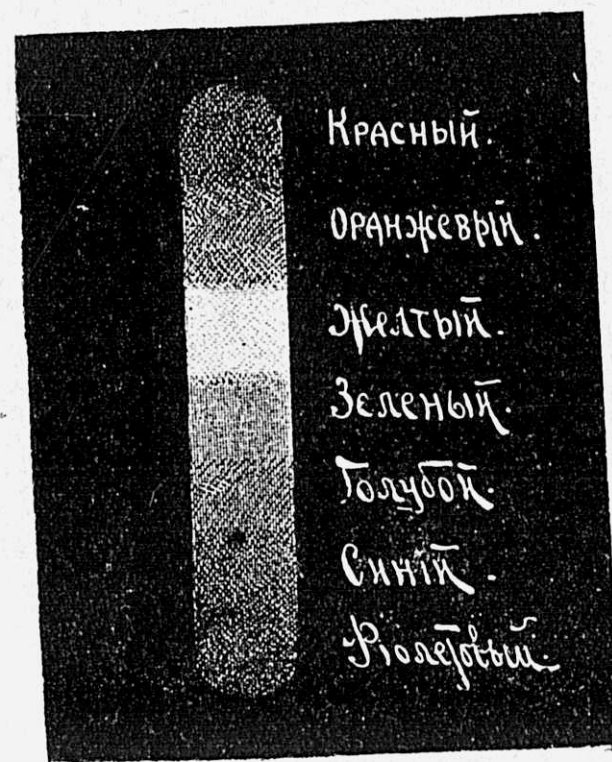 Красный.
Оранжевый.
Желтый.
Зеленый.
Голубой.
Синій.
Фіолетовый.